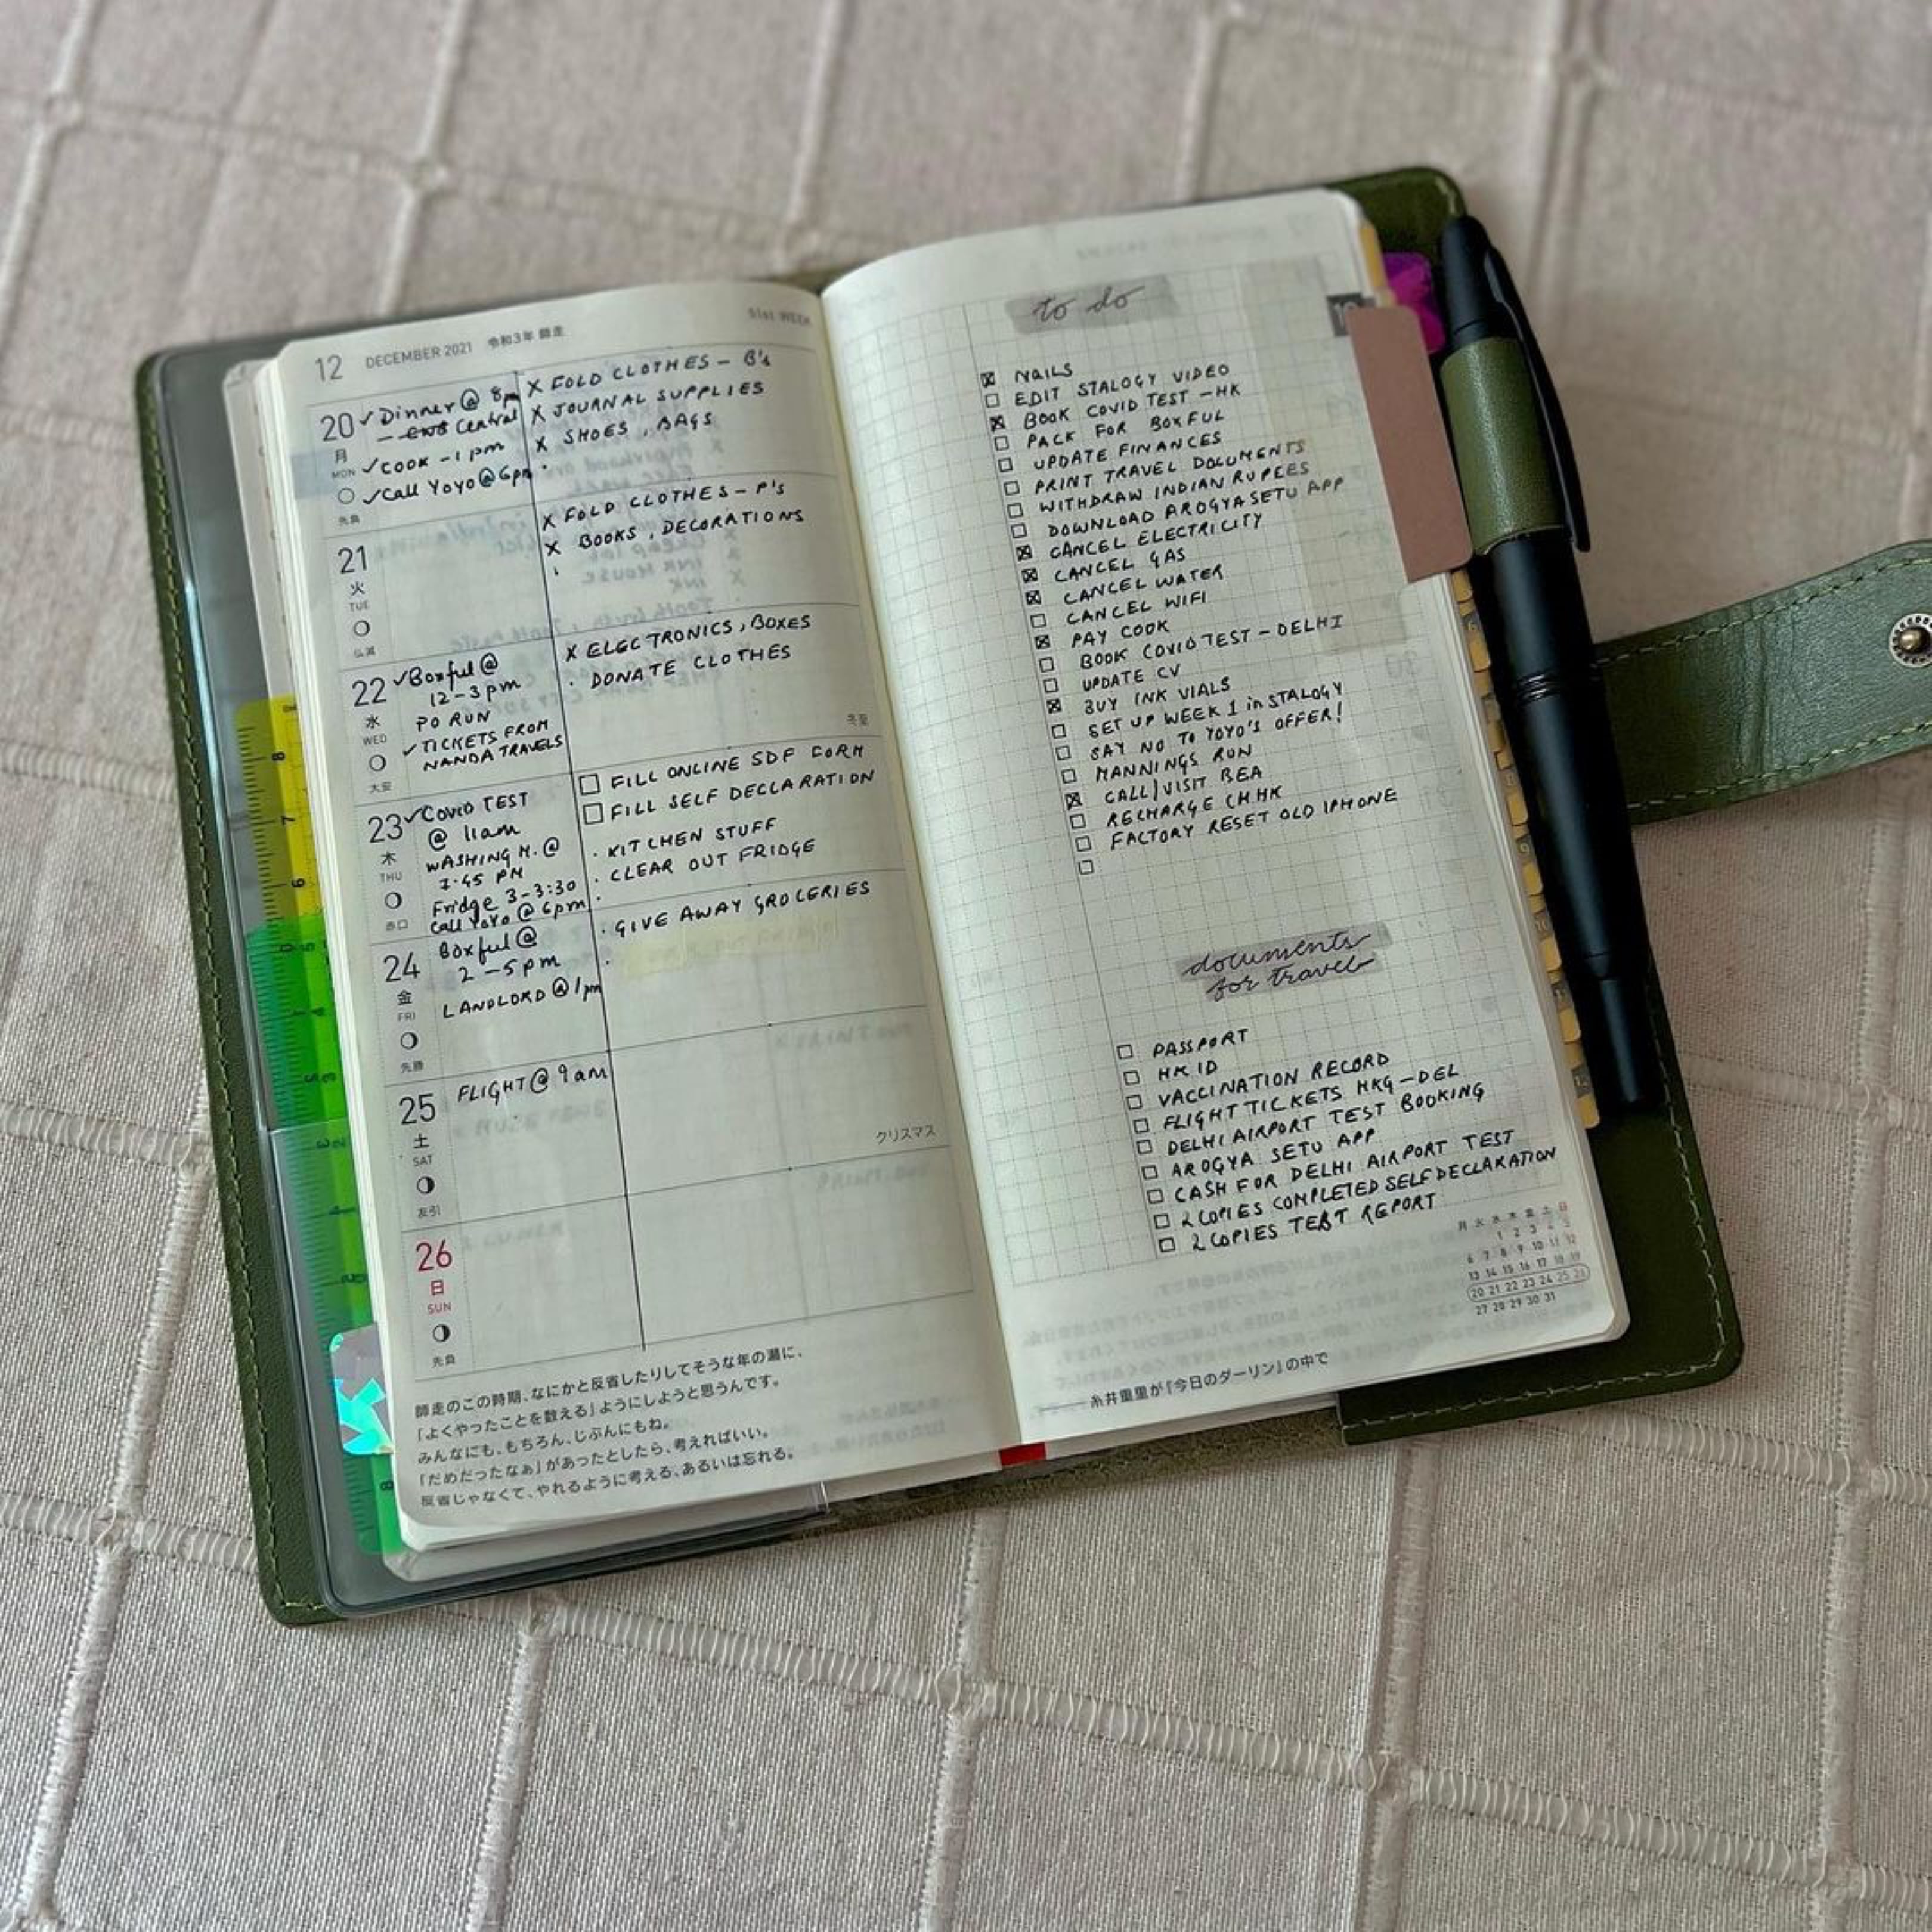 12 DECEMBER 2021 令和3年 師走
51st WEEK
20
月
MON
先負
✓ Dinner @ 8pm
- Central
✓ COOK - 1 pm
✓ Call Yoyo @ 6pm
X FOLD CLOTHES - B's
X JOURNAL SUPPLIES
X SHOES, BAGS
21
火
TUE
仏滅
X FOLD CLOTHES - P's
X BOOKS, DECORATIONS
22
水
WED
大安
✓ Boxful @
12-3 pm
PO RUN
✓ TICKETS FROM
NANDA TRAVELS
X ELECTRONICS, BOXES
. DONATE CLOTHES
冬至
23
木
THU
赤口
✓ COVID TEST
@ 11am
WASHING M. @
7.45 PM
Fridge 3-3:30
Call YoYo @ 6pm
☐ FILL ONLINE SDF FORM
☐ FILL SELF DECLARATION
. KITCHEN STUFF
. CLEAR OUT FRIDGE
24
金
FRI
先勝
Boxful @
2-5pm
LANDLORD @ 1pm
. GIVE AWAY GROCERIES
25
土
SAT
友引
FLIGHT @ 9am
クリスマス
26
日
SUN
先負
師走のこの時期、なにかと反省したりしてそうな年の瀬に、
「よくやったことを数える」ようにしようと思うんです。
みんなにも、もちろん、じぶんにもね。
「だめだったなぁ」があったとしたら、考えればいい。
反省じゃなくて、やれるように考える、あるいは忘れる。
to do
☒ NAILS
☐ EDIT STALOGY VIDEO
☒ BOOK COVID TEST - HK
☐ PACK FOR BOXFUL
☐ UPDATE FINANCES
☐ PRINT TRAVEL DOCUMENTS
☐ WITHDRAW INDIAN RUPEES
☐ DOWNLOAD AROGYA SETU APP
☒ CANCEL ELECTRICITY
☒ CANCEL GAS
☒ CANCEL WATER
☐ CANCEL WIFI
☒ PAY COOK
☐ BOOK COVID TEST - DELHI
☐ UPDATE CV
☒ BUY INK VIALS
☐ SET UP WEEK 1 in STALOGY
☐ SAY NO TO YOYO'S OFFER!
☐ MANNINGS RUN
☒ CALL/VISIT BEA
☐ RECHARGE CHHK
☐ FACTORY RESET OLD IPHONE
☐
documents
for travel
☐ PASSPORT
☐ HK ID
☐ VACCINATION RECORD
☐ FLIGHT TICKETS HKG-DEL
☐ DELHI AIRPORT TEST BOOKING
☐ AROGYA SETU APP
☐ CASH FOR DELHI AIRPORT TEST
☐ 2 COPIES COMPLETED SELF DECLARATION
☐ 2 COPIES TEST REPORT
月 火 水 木 金 土 日
1 2 3 4 5
6 7 8 9 10 11 12
13 14 15 16 17 18 19
20 21 22 23 24 25 26
27 28 29 30 31
糸井重里が『今日のダーリン』の中で